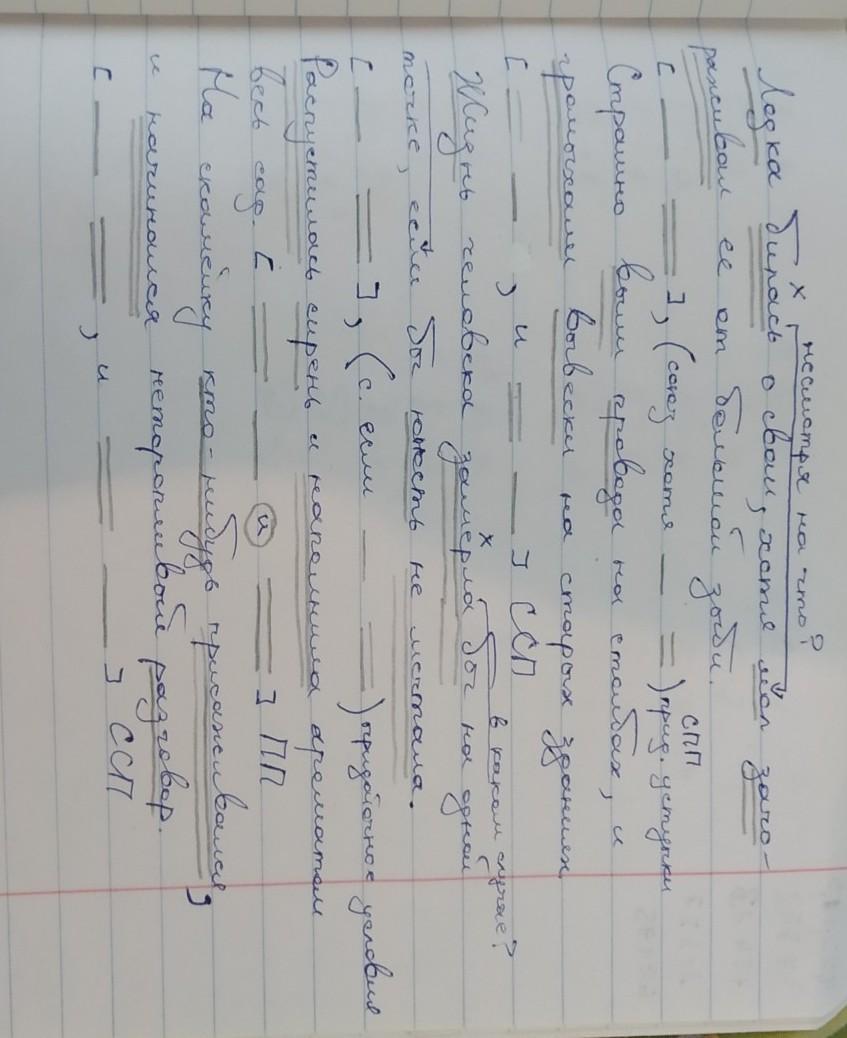 несмотря на что?
х
Лодка билась о сваи, хотя мол заго-
раживал её от большой зыби.
[ — = ], (союз хотя — = ) прид. уступки
СПП
Страшно выли провода на столбах, и
громыхали вывески на старых зданиях
[ = — , и = — ] ССП
в каком случае?
х
Жизнь человека замерла бы на одной
точке, если бы юность не мечтала.
[ — = ], (с. если — = ) придаточное условия
Распустилась сирень и наполнила ароматом
весь сад. [ = — и = ] ПП
На скамейку кто-нибудь присаживался,
и начинался неторопливый разговор.
[ — = , и = — ] ССП